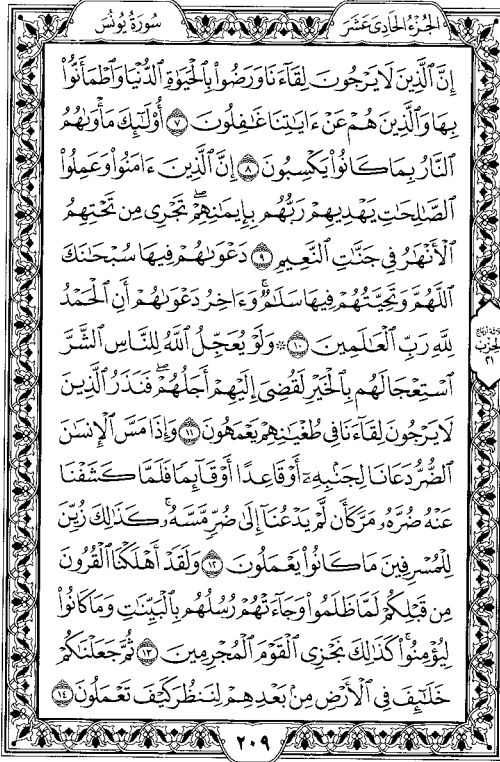 الجُزْءُ الحَادِى عَشَرَ
سُورَةُ يُونُسَ
إِنَّ ٱلَّذِينَ لَا يَرْجُونَ لِقَآءَنَا وَرَضُوا۟ بِٱلْحَيَوٰةِ ٱلدُّنْيَا وَٱطْمَأَنُّوا۟
بِهَا وَٱلَّذِينَ هُمْ عَنْ ءَايَـٰتِنَا غَـٰفِلُونَ ٧ أُو۟لَـٰٓئِكَ مَأْوَىٰهُمُ
ٱلنَّارُ بِمَا كَانُوا۟ يَكْسِبُونَ ٨ إِنَّ ٱلَّذِينَ ءَامَنُوا۟ وَعَمِلُوا۟
ٱلصَّـٰلِحَـٰتِ يَهْدِيهِمْ رَبُّهُم بِإِيمَـٰنِهِمْ ۖ تَجْرِى مِن تَحْتِهِمُ
ٱلْأَنْهَـٰرُ فِى جَنَّـٰتِ ٱلنَّعِيمِ ٩ دَعْوَىٰهُمْ فِيهَا سُبْحَـٰنَكَ
ٱللَّهُمَّ وَتَحِيَّتُهُمْ فِيهَا سَلَـٰمٌ ۚ وَءَاخِرُ دَعْوَىٰهُمْ أَنِ ٱلْحَمْدُ
لِلَّهِ رَبِّ ٱلْعَـٰلَمِينَ ١٠ ۞ وَلَوْ يُعَجِّلُ ٱللَّهُ لِلنَّاسِ ٱلشَّرَّ
ٱسْتِعْجَالَهُم بِٱلْخَيْرِ لَقُضِىَ إِلَيْهِمْ أَجَلُهُمْ ۖ فَنَذَرُ ٱلَّذِينَ
لَا يَرْجُونَ لِقَآءَنَا فِى طُغْيَـٰنِهِمْ يَعْمَهُونَ ١١ وَإِذَا مَسَّ ٱلْإِنسَـٰنَ
ٱلضُّرُّ دَعَانَا لِجَنۢبِهِۦٓ أَوْ قَاعِدًا أَوْ قَآئِمًا فَلَمَّا كَشَفْنَا
عَنْهُ ضُرَّهُۥ مَرَّ كَأَن لَّمْ يَدْعُنَآ إِلَىٰ ضُرٍّ مَّسَّهُۥ ۚ كَذَٰلِكَ زُيِّنَ
لِلْمُسْرِفِينَ مَا كَانُوا۟ يَعْمَلُونَ ١٢ وَلَقَدْ أَهْلَكْنَا ٱلْقُرُونَ
مِن قَبْلِكُمْ لَمَّا ظَلَمُوا۟ وَجَآءَتْهُمْ رُسُلُهُم بِٱلْبَيِّنَـٰتِ وَمَا كَانُوا۟
لِيُؤْمِنُوا۟ ۚ كَذَٰلِكَ نَجْزِى ٱلْقَوْمَ ٱلْمُجْرِمِينَ ١٣ ثُمَّ جَعَلْنَـٰكُمْ
خَلَـٰٓئِفَ فِى ٱلْأَرْضِ مِنۢ بَعْدِهِمْ لِنَنظُرَ كَيْفَ تَعْمَلُونَ ١٤
الحزب
٢١
٢٠٩